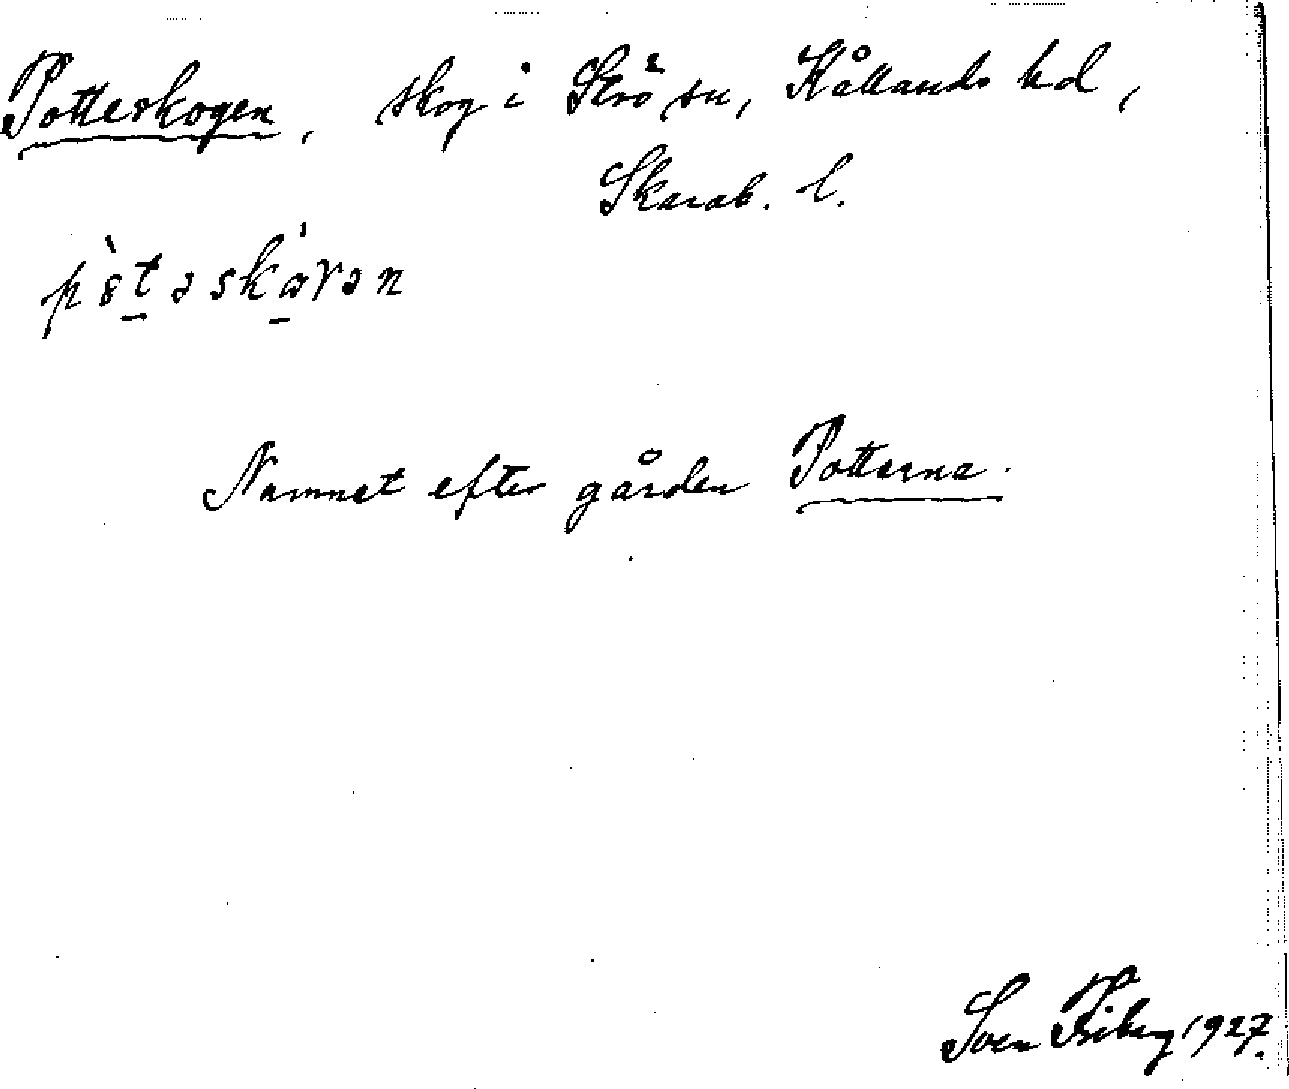 Potteskogen, skog i Strö sn, Kållands hd,
Skarab. l.
Namnet efter gården Potterna.
Sven Friberg 1927.